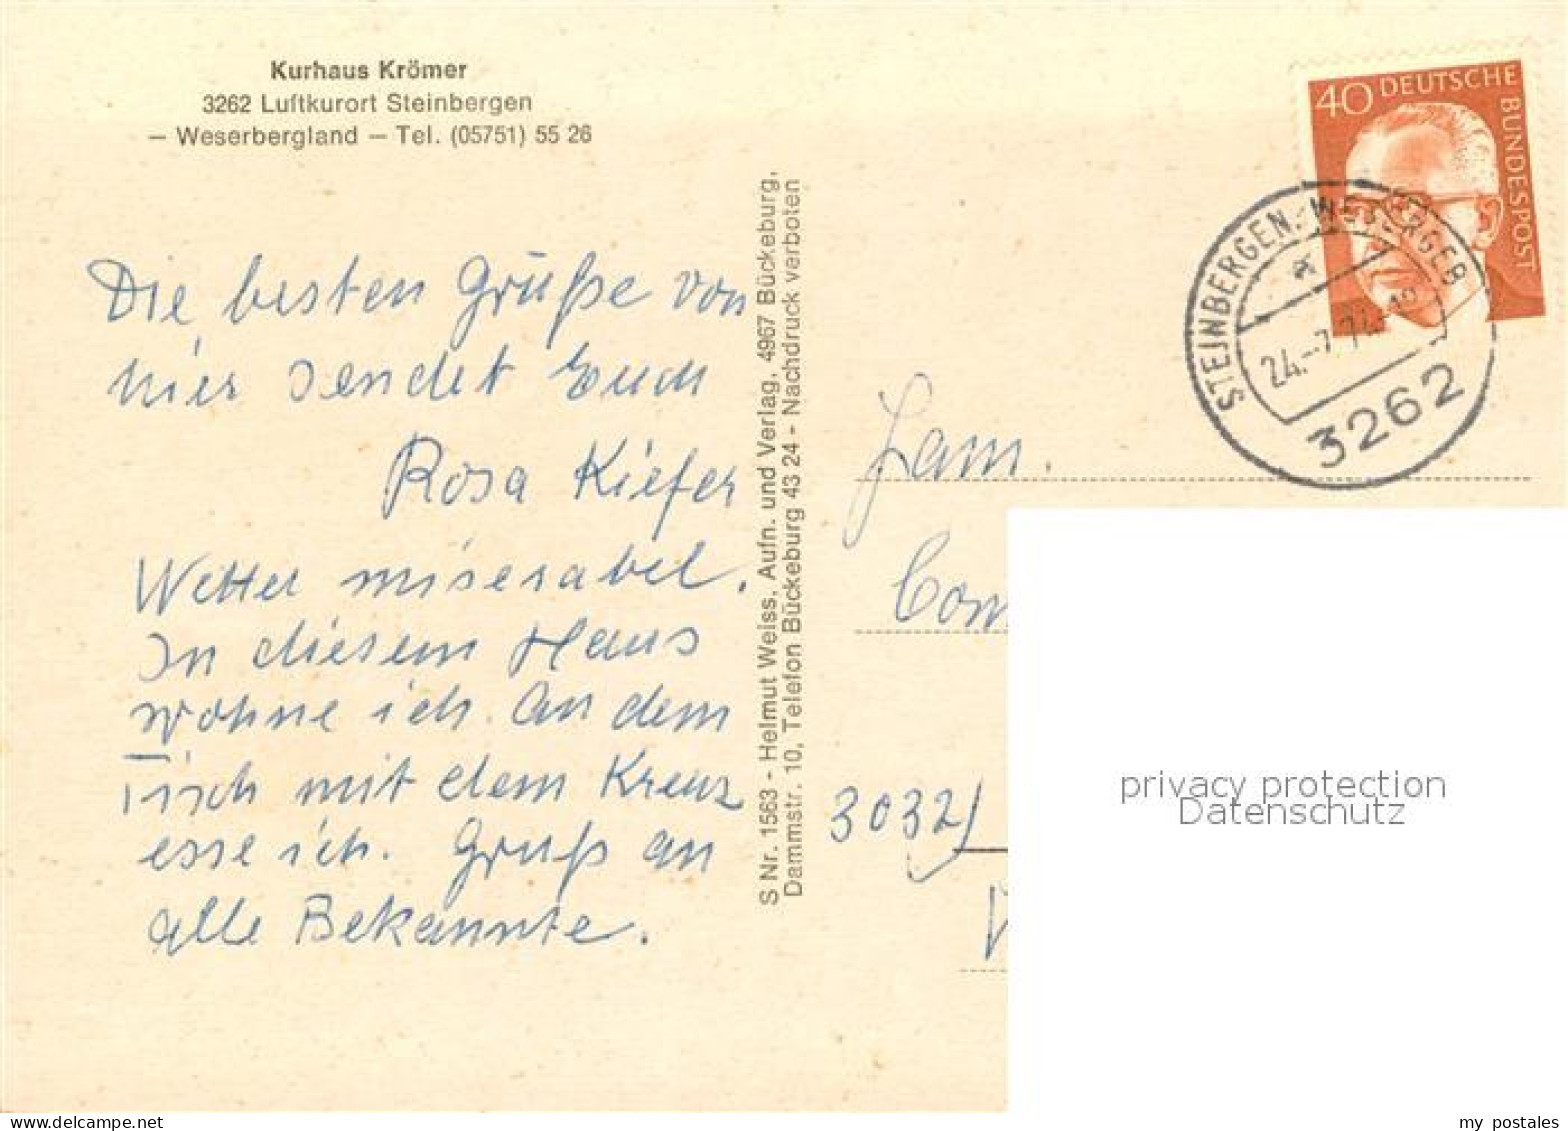 Kurhaus Krömer
3262 Luftkurort Steinbergen
— Weserbergland — Tel. (05751) 55 26
Die besten Grüße von
hier sendet Euch
Rosa Kiefer
Wetter miserabel.
In diesem Haus
wohne ich. An dem
Tisch mit dem Kreuz
esse ich. Gruß an
alle Bekannte.
S Nr. 1563 - Helmut Weiss, Aufn. und Verlag, 4967 Bückeburg,
Dammstr. 10, Telefon Bückeburg 43 24 - Nachdruck verboten
40 DEUTSCHE BUNDESPOST
STEINBERGEN, WESERGEB
a
24.-7.74
3262
Fam.
3032
privacy protection
Datenschutz
my postales